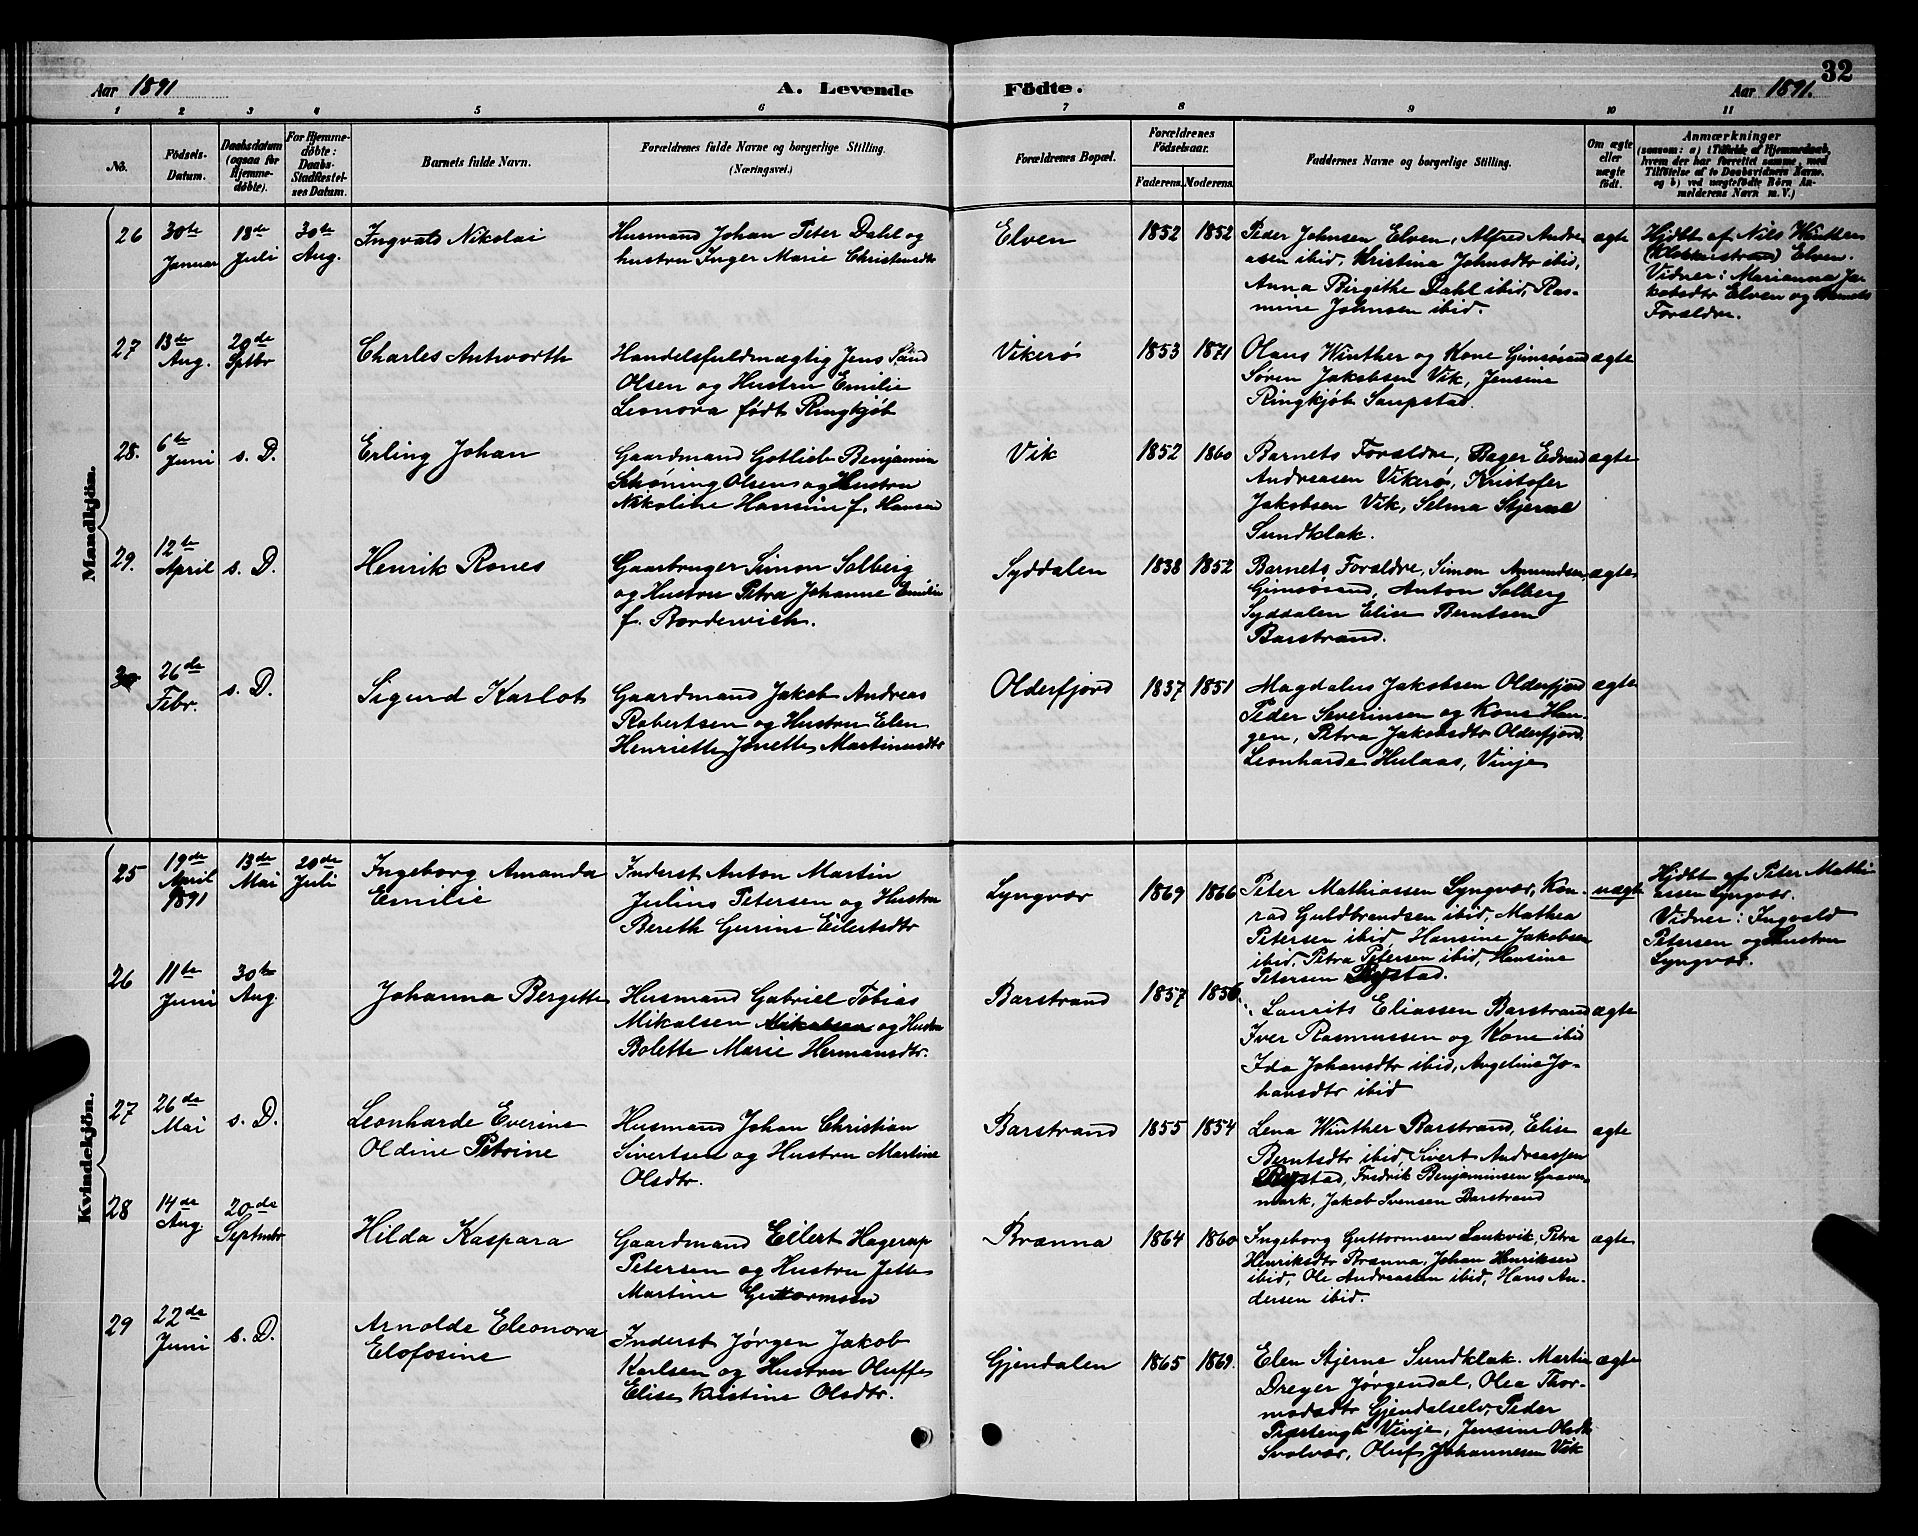 32
Aar 1891 A. Levende Födte. Aar 1891.
1 2 3 4 5 6 7 8 9 10 11
No. Födsels-Datum. Daabsdatum (ogsaa for Hjemmedöbte). For Hjemmedöbte: Daabs-Stadfæstelses Datum. Barnets fulde Navn. Forældrenes fulde Navne og borgerlige Stilling. (Næringsvei.) Forældrenes Bopæl. Forældrenes Födselsaar. Faderens. Moderens. Faddernes Navne og borgerlige Stilling. Om ægte eller uægte födt. Anmærkninger (saasom: a) i Tilfælde af Hjemmedaab, hvem der har forrettet samme, med Tilföielse af to Daabsvidners Navne, og b) ved uægtefödte Börn Anmelderens Navn m. V.)
Mandkjön.
26 30te Januar 18de Juli 30te Aug. Ingvald Nikolai
Husmand Johan Peter Dahl og
hustru Inger Marie Christensdtr
Elven 1852 1852
Peder Johnsen Elven, Alfred Andre-
asen ibid, Kristina Johnsdtr ibid,
Anna Birgithe Dahl ibid, Ras-
mine Johnsen ibid.
ægte
Hjdbt af Nils Winther
(Klokkerstrand) Elven.
Vidner: Marianna Ja-
kobsdtr Elven og Barnets
Forældre.
27 13de Aug. 20de Sptbr Charles Antworth
Handelsfuldmægtig Jens Sand
Olsen og Hustru Emilie
Leonora født Ringkjøb
Vikerø 1853 1871
Olaus Winther og Kone Gimsøsand
Søren Jakobsen Vik, Jensine
Ringkjøb Saupstad.
ægte
28. 6te Juni s. D. Erling Johan
Gaardmand Gotlieb Benjamin
Schøning Olsen og Hustru
Nikoline Hansine f. Hansen
Vik 1852 1860
Barnets Forældre, Bager Edvard
Andreasen Vikerø, Kristofer
Jakobsen Vik, Selma Stjerne
Sundklak.
ægte
29. 12te April s. D. Henrik Rones
Gaarbruger Simon Solberg
og Hustru Petra Johanne Emilie
f. Bordewich.
Syddalen 1838 1852
Barnets Forældre, Simon Amundsen
Gimsøsand, Anton Solberg
Syddalen Elise Berntsen
Barstrand.
ægte
30 26de Febr. s. D. Sigurd Karlot
Gaardmand Jakob Andreas
Robertsen og Hustru Elen
Henriette Jonette Martinusdtr
Olderfjord 1837 1851
Magdalus Jakobsen Olderfjord
Peder Severinsen og Kone Hau-
gen, Petra Jakobsdtr Olderfjord.
Leonharde Hulaas, Vinje
ægte
Kvindekjön.
25 19de April 1891 13de Mai 20de Juli
Ingeborg Amanda
Emilie
Inderst Anton Martin
Julius Petersen og Hustru
Bereth Gurine Eilertsdtr
Lyngvær 1869 1866
Peter Mathiassen Lyngvær, Kon-
rad Guldbrandsen ibid, Mathea
Petersen ibid, Hansine Jakobsen
ibid, Petra Petersen ibid, Hansine
Petersen Rystad.
uægte
Hjdbt af Peter Mathi-
assen Lyngvær.
Vidner: Ingvald
Petersen og Hustru
Lyngvær.
26 11te Juni 30te Aug. Johanna Bergette
Husmand Gabriel Tobias
Mikalsen Mikalsen og Hustru
Bolette Marie Hermansdtr.
Barstrand 1857 1856
Laurits Eliassen Barstrand
Iver Rasmussen og Kone ibid
Ida Johansdtr ibid, Angelina Jo-
hansdtr ibid
ægte
27 26de Mai s. D.
Leonharde Everine
Oldine Petrine
Husmand Johan Christian
Sivertsen og Hustru Martine
Olsdtr.
Barstrand 1855 1854
Lena Winther Barstrand, Elise
Berntsdtr ibid, Sivert Andreassen
Rystad, Fredrik Benjaminsen Graver-
mark, Jakob Svensen Barstrand
ægte
28 14de Aug. 20de Septmbr Hilda Kaspara
Gaardmand Eilert Hagerup
Petersen og Hustru Jette
Martine Guttormsen
Brænna 1864 1860
Ingeborg Guttormsen Laukvik, Petra
Henriksdtr Brænna, Johan Henriksen
ibid, Ole Andreassen ibid, Hans An-
dersen ibid.
ægte
29 22de Juni s. D.
Arnolde Eleonora
Elofosine
Inderst Jørgen Jakob
Karlsen og Hustru Oluffe
Elise Kristine Olsdtr.
Gjendalen 1865 1869.
Elen Stjerne Sundklak. Martin
Dreyer Jørgendal, Olea Thor-
modsdtr Gjendalselv, Peder
Præstengb Vinje, Jensine Olsdtr
Svolvær, Oluf Johannesen Vik
ægte